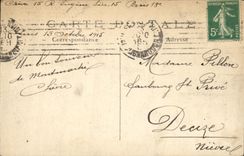 Paris 15 R Eugène Sue 15 Paris 18e
CARTE POSTALE
Paris 13 Octobre 1915
Correspondance
Adresse
Un bon Souvenir
de Montmartre
Madame Pellon
Faubourg St Privé
Decize
Nièvre
5